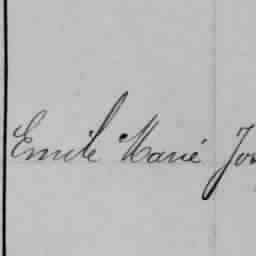 Emile Marie